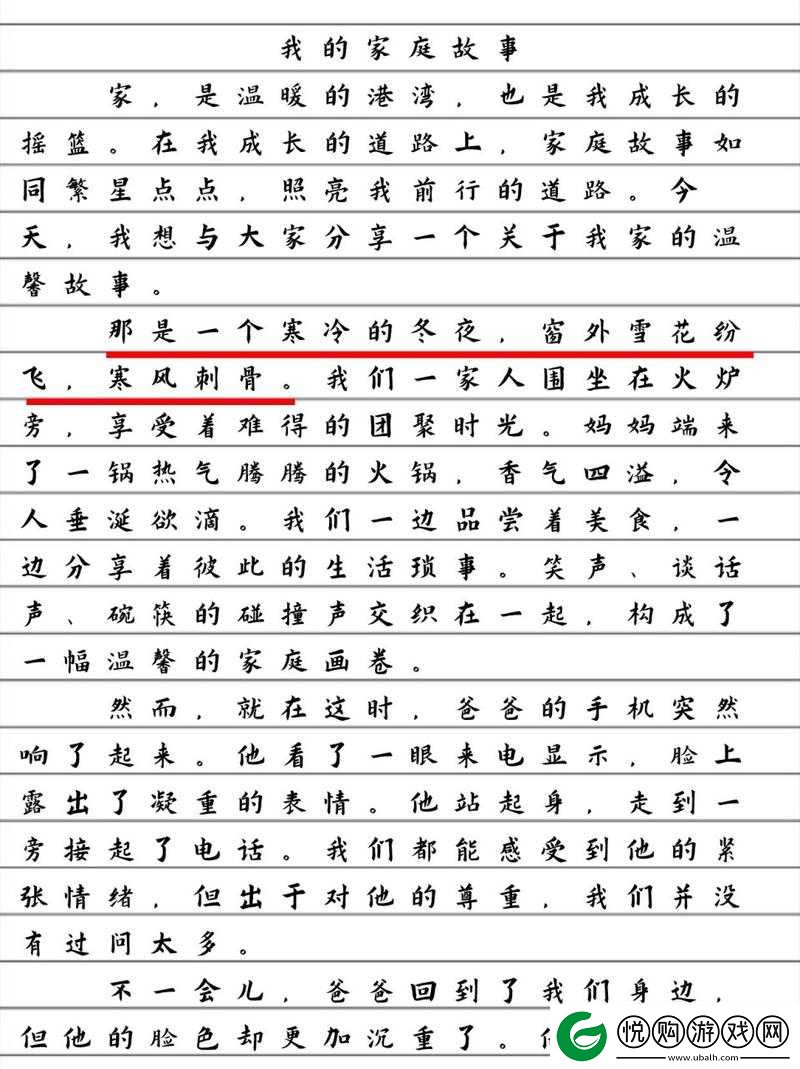 我的家庭故事
家，是温暖的港湾，也是我成长的
摇篮。在我成长的道路上，家庭故事如
同繁星点点，照亮我前行的道路。今
天，我想与大家分享一个关于我家的温
馨故事。
那是一个寒冷的冬夜，窗外雪花纷
飞，寒风刺骨。我们一家人围坐在火炉
旁，享受着难得的团聚时光。妈妈端来
了一锅热气腾腾的火锅，香气四溢，令
人垂涎欲滴。我们一边品尝着美食，一
边分享着彼此的生活琐事。笑声、谈话
声、碗筷的碰撞声交织在一起，构成了
一幅温馨的家庭画卷。
然而，就在这时，爸爸的手机突然
响了起来。他看了一眼来电显示，脸上
露出了凝重的表情。他站起身，走到一
旁接起了电话。我们都能感受到他的紧
张情绪，但出于对他的尊重，我们并没
有过问太多。
不一会儿，爸爸回到了我们身边，
但他的脸色却更加沉重了。
悦购游戏网
www.ubalh.com